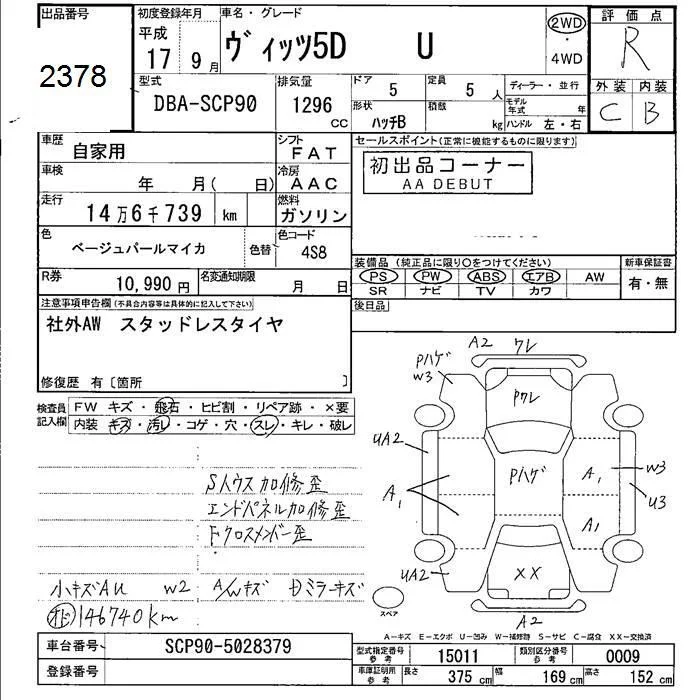 出品番号
2378
初度登録年月
平成
17 9月
車名・グレード
ヴィッツ5D U
2WD
・
4WD
評価点
R
外装 内装
C B
型式
DBA-SCP90
排気量
1296
CC
ドア
5
定員
5人
形状
ハッチB
積数
kg
ディーラー・並行
モデル年式 年
ハンドル 左・右
車歴
自家用
シフト
FAT
車検
年 月( 日)
冷房
AAC
走行
14万6千739 km
燃料
ガソリン
色
ベージュパールマイカ
色替
色コード
4S8
R券
10,990円
名変通知期限
月 日
セールスポイント(正常に機能するものに限ります)
初出品コーナー
AA DEBUT
装備品(純正品に限り〇をつけてください)
PS PW ABS エアB AW
SR ナビ TV カワ
新車保証書
有・無
後日品
注意事項申告欄(不具合内容等は具体的に記入して下さい)
社外AW スタッドレスタイヤ
修復歴 有〔箇所 〕
検査員記入欄
FW キズ・飛石・ヒビ割・リペア跡・×要
内装・キズ・汚レ・コゲ・穴・スレ・キレ・破レ
Sハウス加修歪
エンドパネル加修歪
Fクロスメンバー歪
小キズAU W2 A/Wキズ
ミラーキズ
146740km
A2 ワレ
Pハゲ
W3
Pワレ
UA2
Pハゲ
A1
A1
A1
W3
U3
UA2
XX
A2
スペア
A-キズ E-エクボ U-凹み W-補修跡 S-サビ C-腐食 XX-交換済
車台番号
SCP90-5028379
登録番号
型式指定番号
参考
15011
類別区分番号
参考
0009
車庫証明用
参考
長さ 375 cm 幅 169 cm 高さ 152 cm